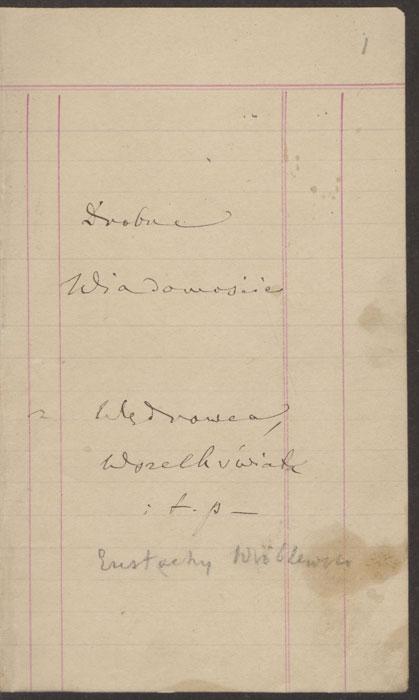 1
Drobne
Wiadomości
z Wędrowca,
Wszechświata
i t. p —
Eustachy Wróblewski